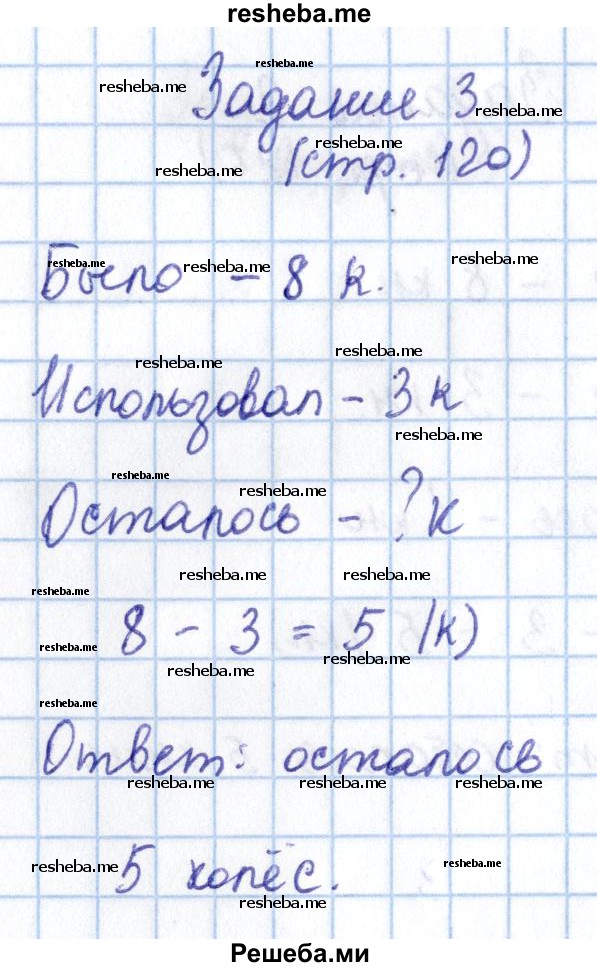 resheba.me
resheba.me
resheba.me
Задание 3
resheba.me
resheba.me
resheba.me
(стр. 120)
resheba.me
resheba.me
resheba.me
Было - 8 к.
resheba.me
resheba.me
Использовал - 3 к
resheba.me
resheba.me
resheba.me
Осталось - ? к
resheba.me
resheba.me
resheba.me
8 - 3 = 5 (к)
resheba.me
resheba.me
resheba.me
resheba.me
Ответ: осталось
resheba.me
resheba.me
resheba.me
resheba.me
resheba.me
5 колёс.
resheba.me
Решеба.ми